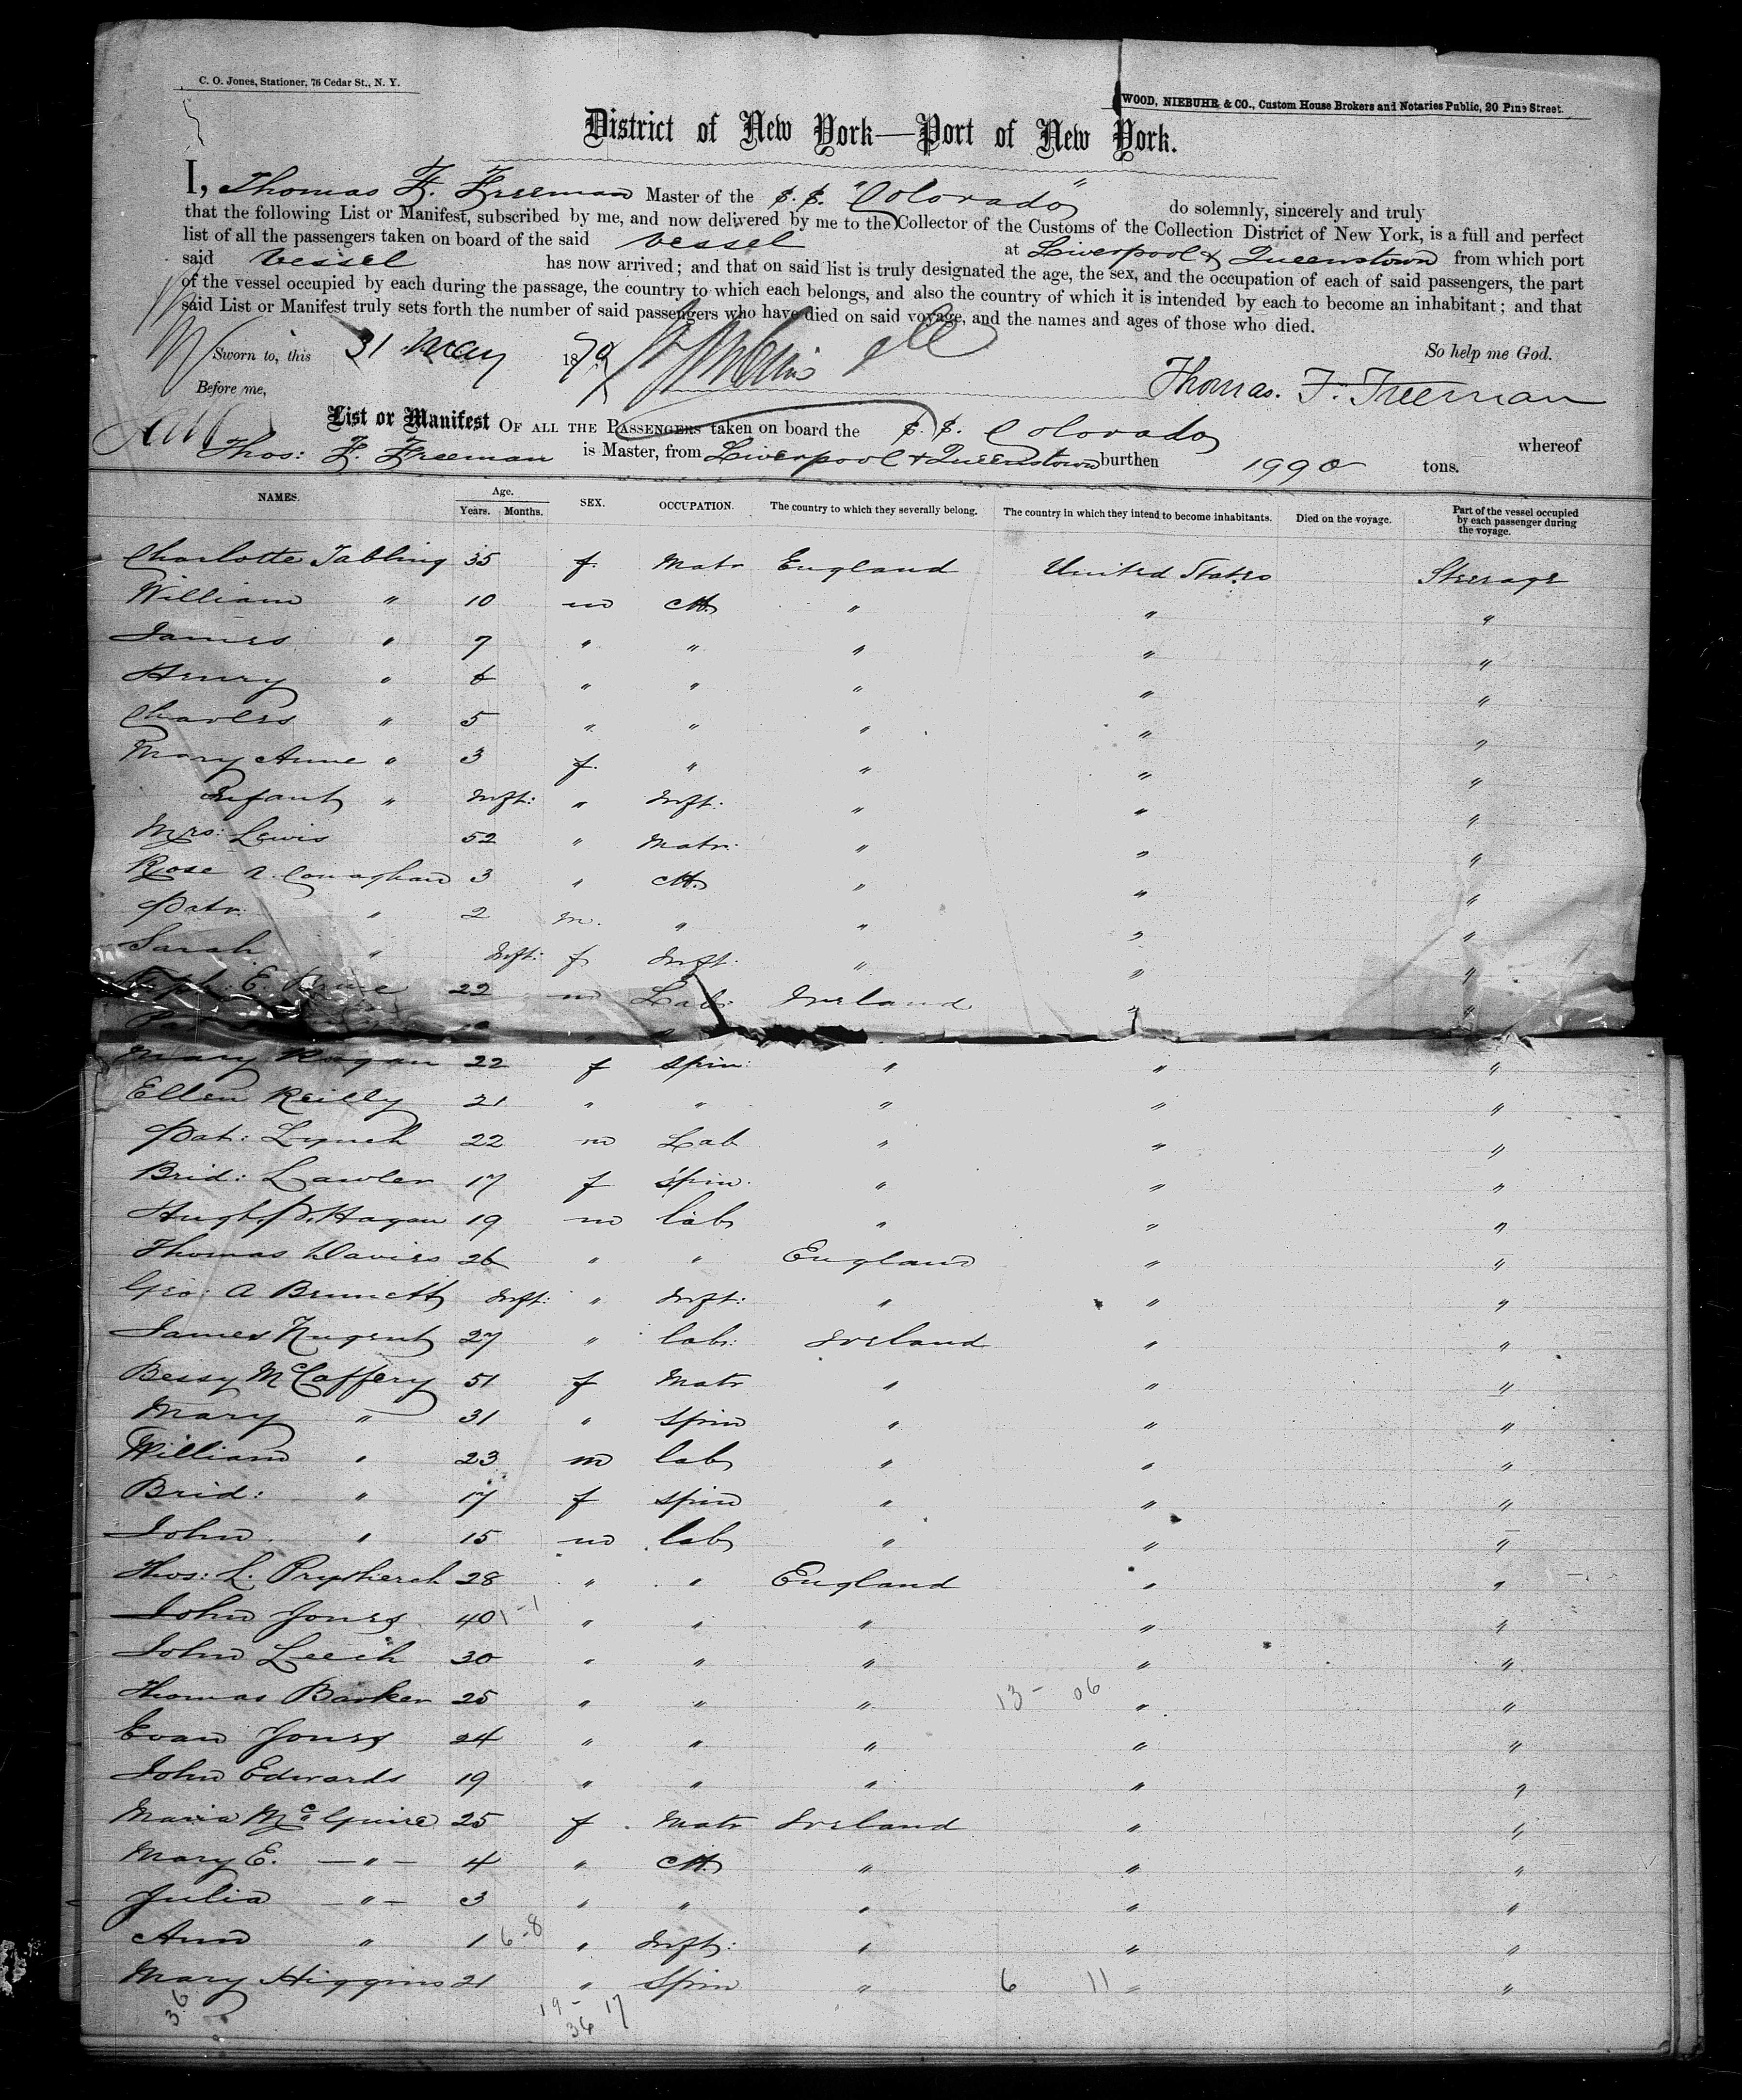 C. O. Jones, Stationer, 76 Cedar St., N. Y.
WOOD, NIEBUHR & CO., Custom House Brokers and Notaries Public, 20 Pine Street.
District of New York—Port of New York.
I, Thomas F. Freeman Master of the S. S. "Colorado" do solemnly, sincerely and truly
that the following List or Manifest, subscribed by me, and now delivered by me to the Collector of the Customs of the Collection District of New York, is a full and perfect
list of all the passengers taken on board of the said vessel at Liverpool & Queenstown from which port
said vessel has now arrived; and that on said list is truly designated the age, the sex, and the occupation of each of said passengers, the part
of the vessel occupied by each during the passage, the country to which each belongs, and also the country of which it is intended by each to become an inhabitant; and that
said List or Manifest truly sets forth the number of said passengers who have died on said voyage, and the names and ages of those who died.
Sworn to, this 31 May 1870 So help me God.
Before me, Thomas. F. Freeman
List or Manifest OF ALL THE PASSENGERS taken on board the S. S. Colorado whereof
Thos: F. Freeman is Master, from Liverpool & Queenstown burthen 1990 tons.
NAMES. Age. Years. Months. SEX. OCCUPATION. The country to which they severally belong. The country in which they intend to become inhabitants. Died on the voyage. Part of the vessel occupied by each passenger during the voyage.
Charlotte Tabling 35 f. Matr England United States Steerage
William " 10 m Ch. " " "
James " 7 " " " " "
Henry " 6 " " " " "
Charles " 5 " " " " "
Mary Anne " 3 f. " " " "
Infant " Inft: " Inft: " " "
Mrs: Lewis 52 " Matr: " " "
Rose A. Conaghan 3 " Ch. " " "
Patr: " 2 m. " " " "
Sarah " Inft: f Inft: " " "
E. 22 m Lab: Ireland " "
Mary Hogan 22 f Spin: " " "
Ellen Reilly 21 " " " " "
Pat: Lynch 22 m Lab " " "
Brid: Lawler 17 f Spin. " " "
Hugh P. Hagan 19 m lab " " "
Thomas Davies 26 " " England " "
Geo: A Brunett Inft: " Inft: " " "
James Nugent 27 " lab: Ireland " "
Bessy McCaffery 51 f Matr " " "
Mary " 31 " Spin " " "
William " 23 m lab " " "
Brid: " 17 f spin " " "
John " 15 m lab " " "
Thos: L. Prytherch 28 " " England " "
John Jones 40 1-1 " " " " "
John Leech 30 " " " " "
Thomas Barker 25 " " " 13 - 06 " "
Evan Jones 24 " " " " "
John Edwards 19 " " " " "
Maria McGuire 25 f. Matr Ireland " "
Mary E. — " — 4 " Ch. " " "
Julia — " — 3 " " " " "
Ann " 1 6-8 " Inft: " " "
Mary Higgins 21 " Spin " 6 11 " "
36 19 - 17
36